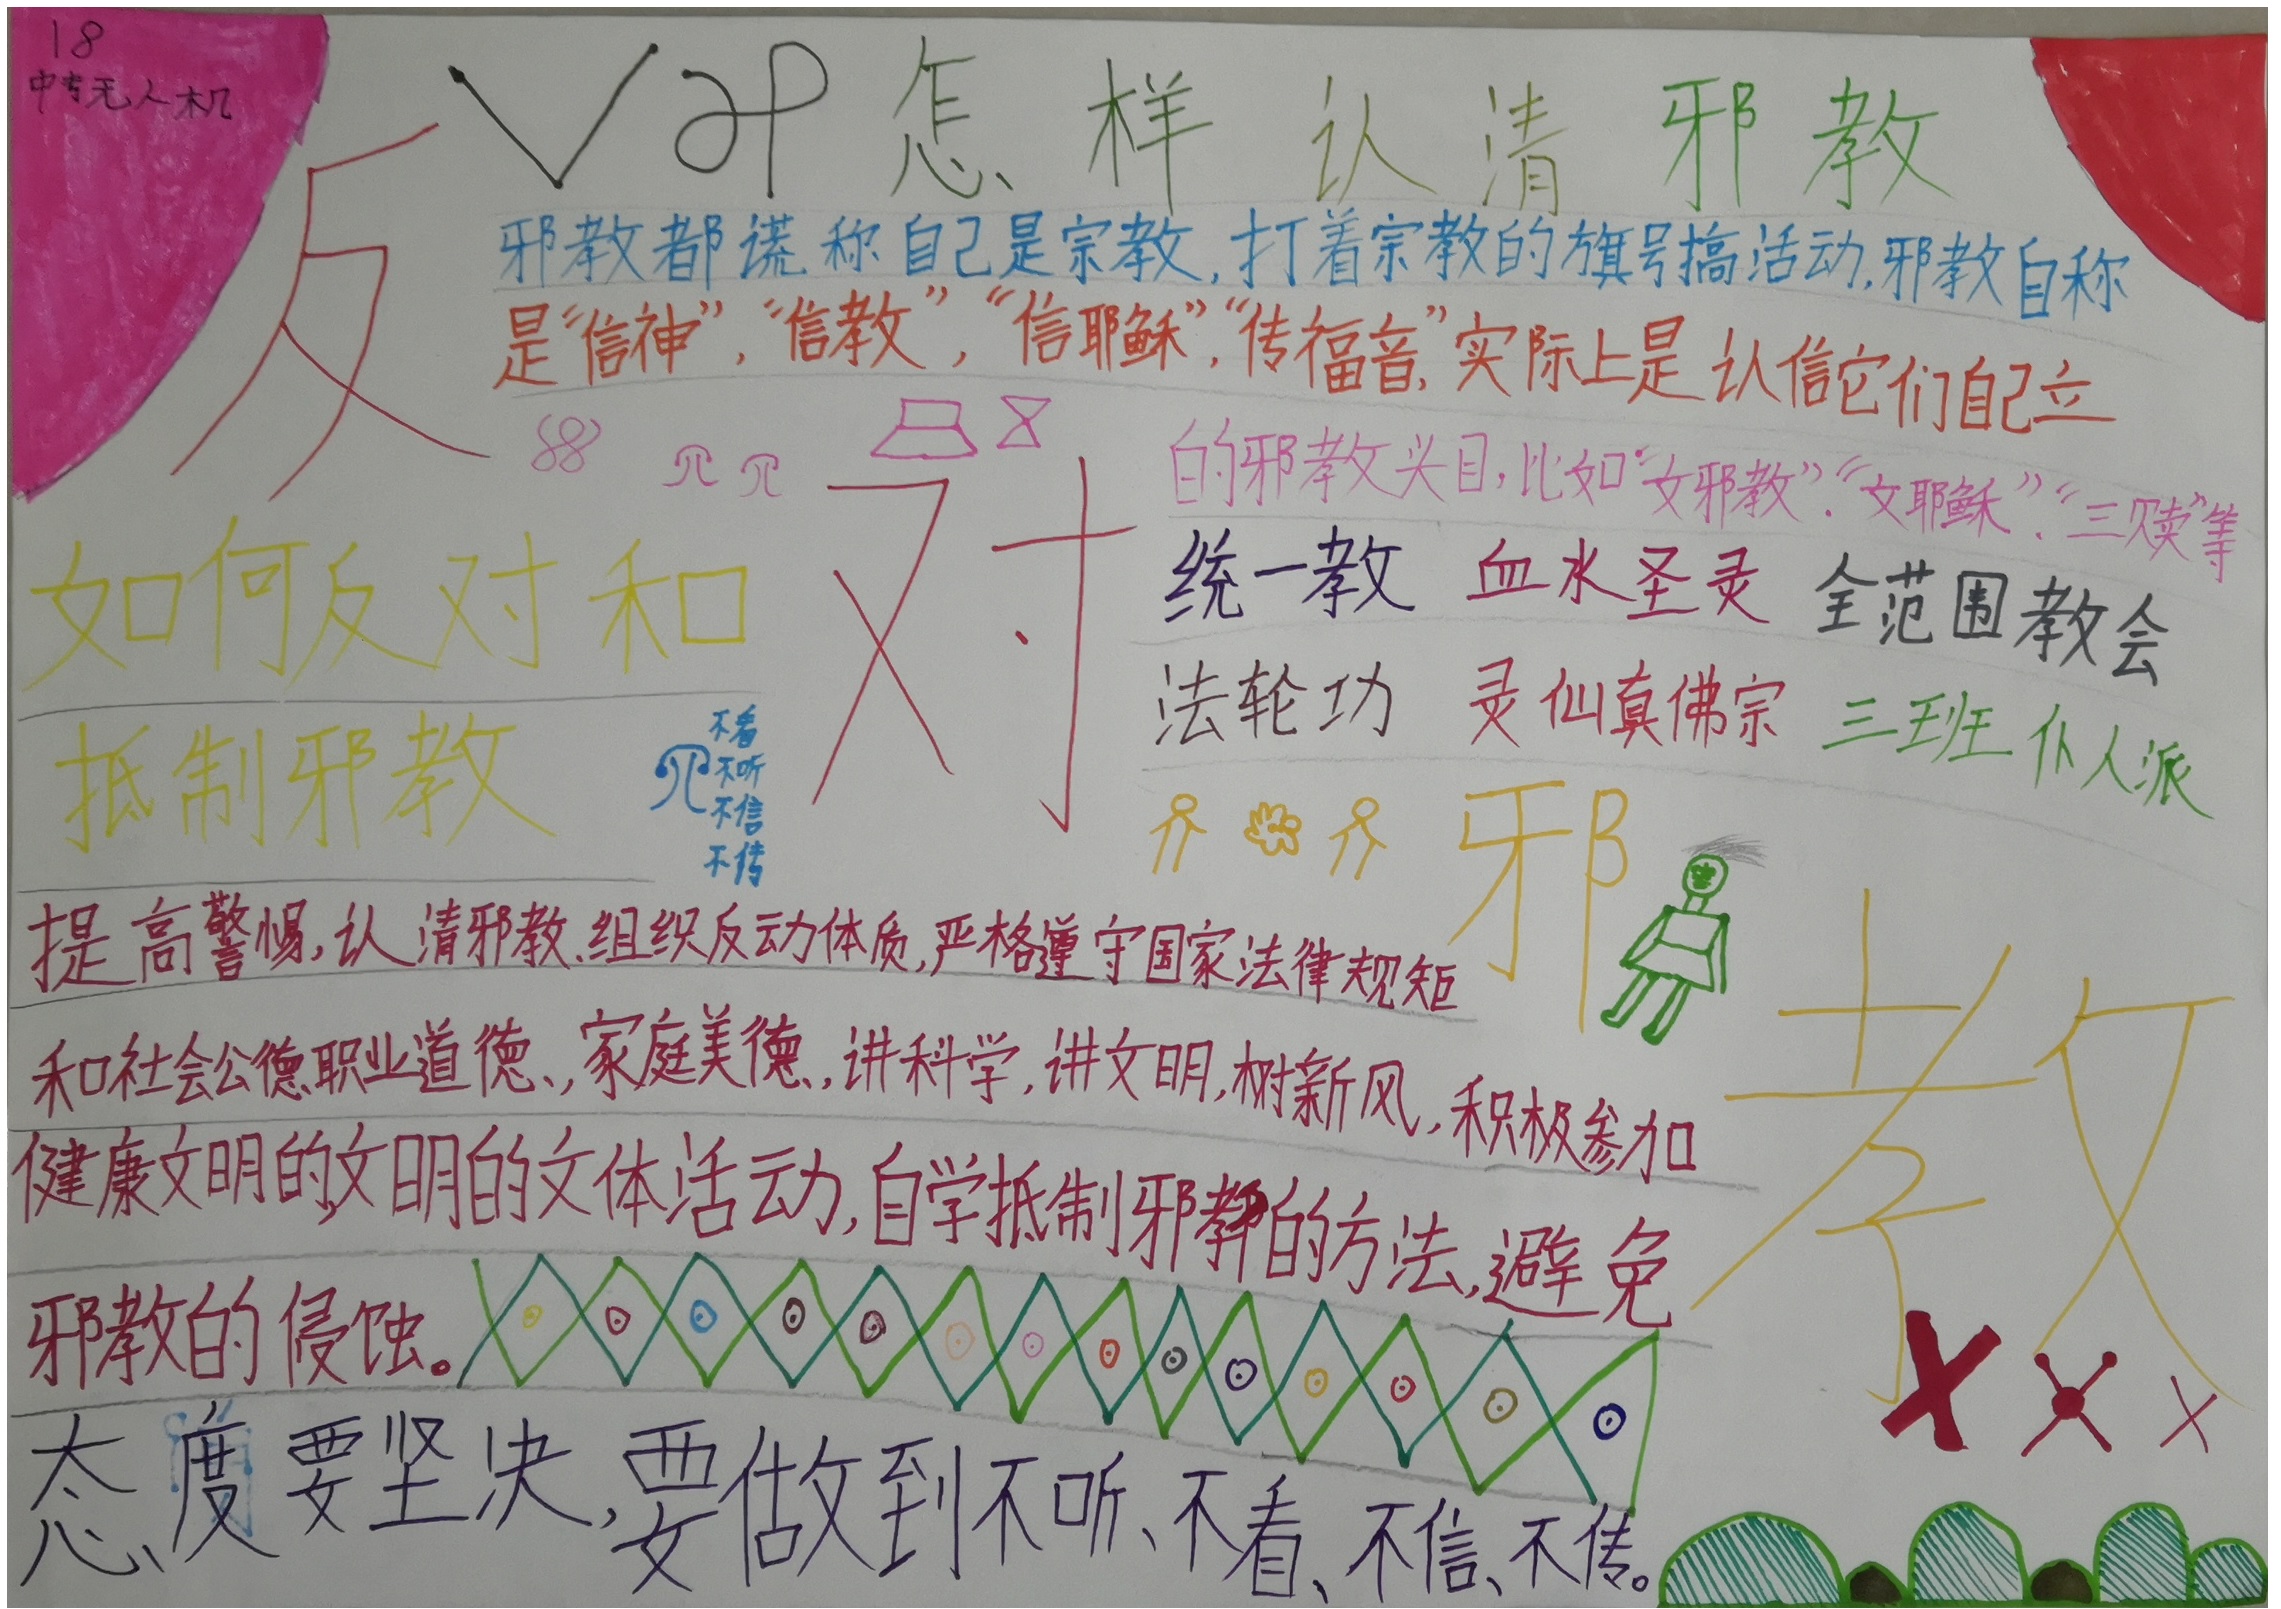 18
中专无人机
怎样认清邪教
邪教都谎称自己是宗教,打着宗教的旗号搞活动,邪教自称
是“信神”,“信教”,“信耶稣”,“传福音,”实际上是认信它们自己立
的邪教头目,比如“女邪教”.“女耶稣”.“三赎”等
统一教 血水圣灵 全范围教会
法轮功 灵仙真佛宗 三班仆人派
反对邪教
如何反对和
抵制邪教
不看
不听
不信
不传
提高警惕,认清邪教.组织反动体质,严格遵守国家法律规矩
和社会公德职业道德、,家庭美德、,讲科学,讲文明,树新风,积极参加
健康文明的,文明的文体活动,自学抵制邪教的方法,避免
邪教的侵蚀。
态度要坚决,要做到不听、不看、不信、不传。